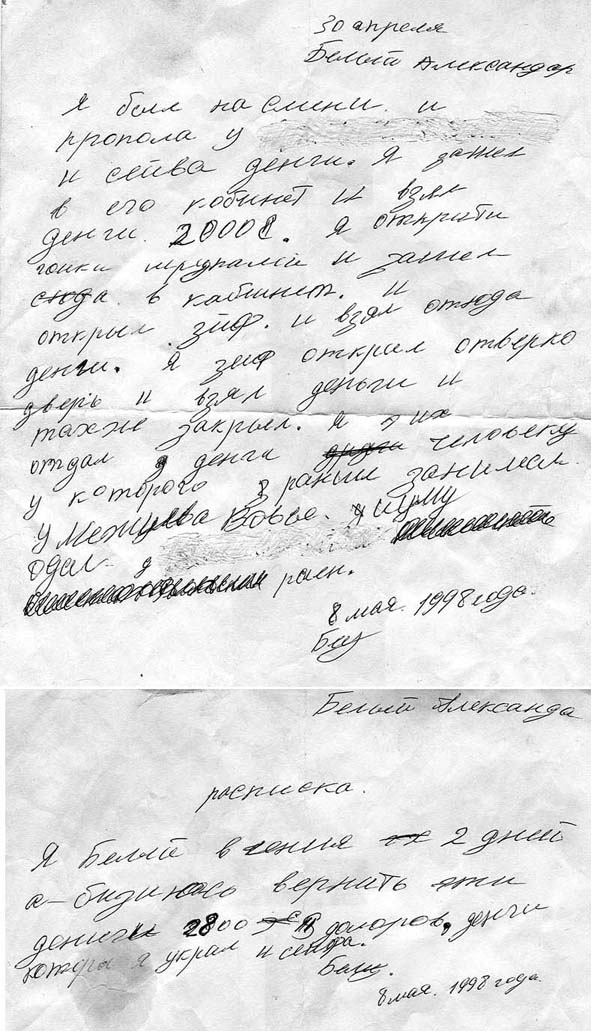 30 апреля
Белый Александар
Я был на смени. и
пропола у
и сейва денги. Я зашел
в его кобинет и взял
денги. 2000$. Я открити
и зашел
сюда в кабинит. и
открыл зиф. и взял отюда
денги. Я зиф открил отверко
дверь и взял деньги и
также закрыл. Я их
отдал денги человеку
у которого я ранши занимал.
у Межуева Вовы.
одал
раен.
8 мая. 1998 года.
Белый Александа
расписка.
Я Белый в тения 2 дней
а-бизиюсь вернить эти
денги 2800 долоров, денги
которы я украл и сейфа.
8 мая. 1998 года.